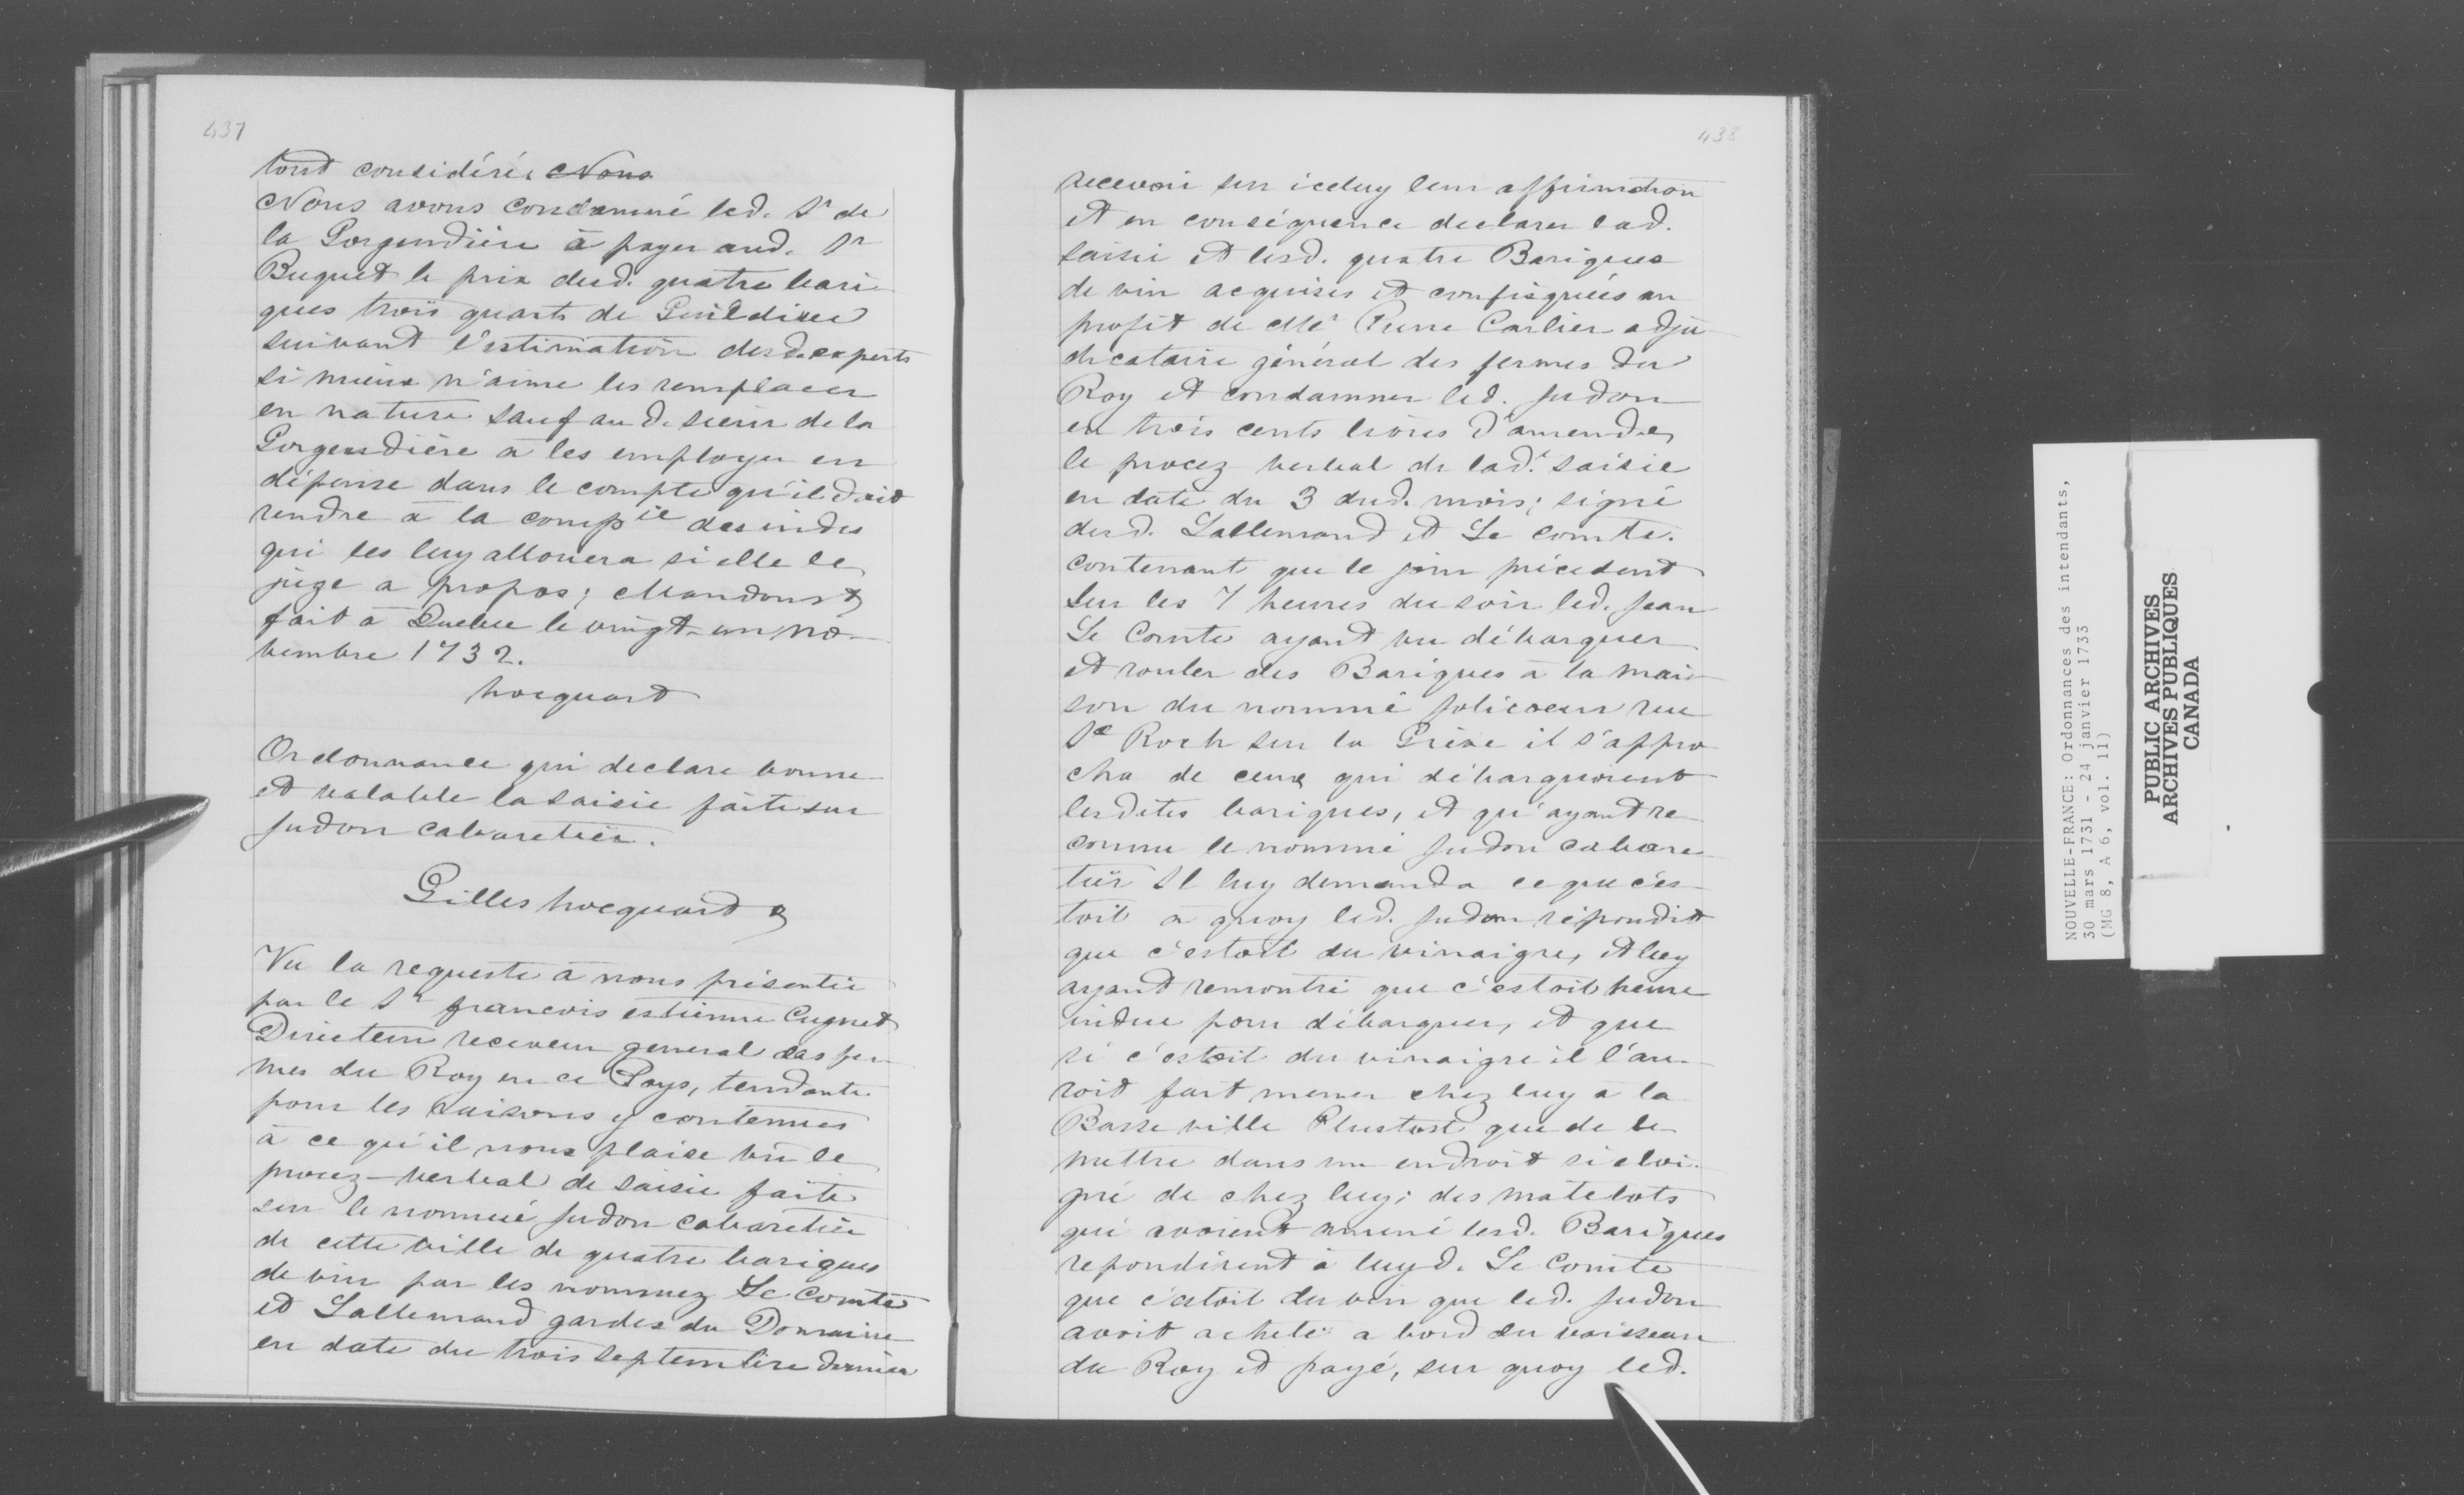 437
tout considéré Nous
Nous avons condamné led. Sr de
la Gorgendière à payer aud. Sr
Buguet le prix desd. quatre bari-
ques trois quarts de Guildive
suivant l'estimation desd. experts
si mieux n'aime les remplacer
en nature sauf aud. sieur de la
Gorgendière à les employer en
dépense dans le compte qu'il doit
rendre à la compie des indes
qui les luy allouera si elle le
juge a propos; Mandons &
fait à Quebec le vingt-un no-
vembre 1732.
hocquart
Ordonnance qui declare bonne
et valable la saisie faite sur
Judon cabaretier.
Gilles hocquart &
Vu la requeste à nous présentée
par le Sr francois estienne Cugnet
Directeur receveur general des fer-
mes du Roy en ce Pays, tendante
pour les raisons y contenues
à ce qu'il nous plaise vû le
procez-verbal de saisie faite
sur le nommé Judon cabaretier
de cette ville de quatre bariques
de vin par les nommez Le Comte
et Lallemand gardes du Domaine
en date du trois septembre dernier
438
recevoir sur iceluy leur affirmation
et en conséquence declarer lad.
saisie et lesd. quatre Bariques
de vin acquises et confisquées au
profit de Me Pierre Carlier adju-
dicataire général des fermes du
Roy et condamner led. Judon
en trois cents livres d'amende,
le procez verbal de lad. saisie
en date du 3 dud. mois; signé
desd. Lallemand et Le comte.
contenant que le jour précedent
sur les 7 heures du soir led. Jean
Le Comte ayant vu débarquer
et rouler des Bariques à la mai-
son du nommé Jolicoeur rue
St Roch sur la Grève il s'appro-
cha de ceux qui débarquoient
lesdites bariques, et qu'ayant re-
connu le nommé Judon cabare-
tier Il luy demanda ce que c'es-
toit à quoy led. Judon répondit
que c'estoit du vinaigre, et luy
ayant remontré que c'estoit heure
indue pour débarquer, et que
si c'estoit du vinaigre il l'au-
roit fait mener chez luy à la
Basse ville Plustost que de le
mettre dans un endroit si eloi-
gné de chez luy; des matelots
qui avoient amené lesd. Bariques
repondirent à luyd. Le Comte
que c'estoit du vin que led. Judon
avoit acheté a bord du vaisseau
du Roy et payé, sur quoy led.
NOUVELLE-FRANCE: Ordonnances des intendants,
30 mars 1731 - 24 janvier 1733
(MG 8, A 6, vol. 11)
PUBLIC ARCHIVES
ARCHIVES PUBLIQUES
CANADA